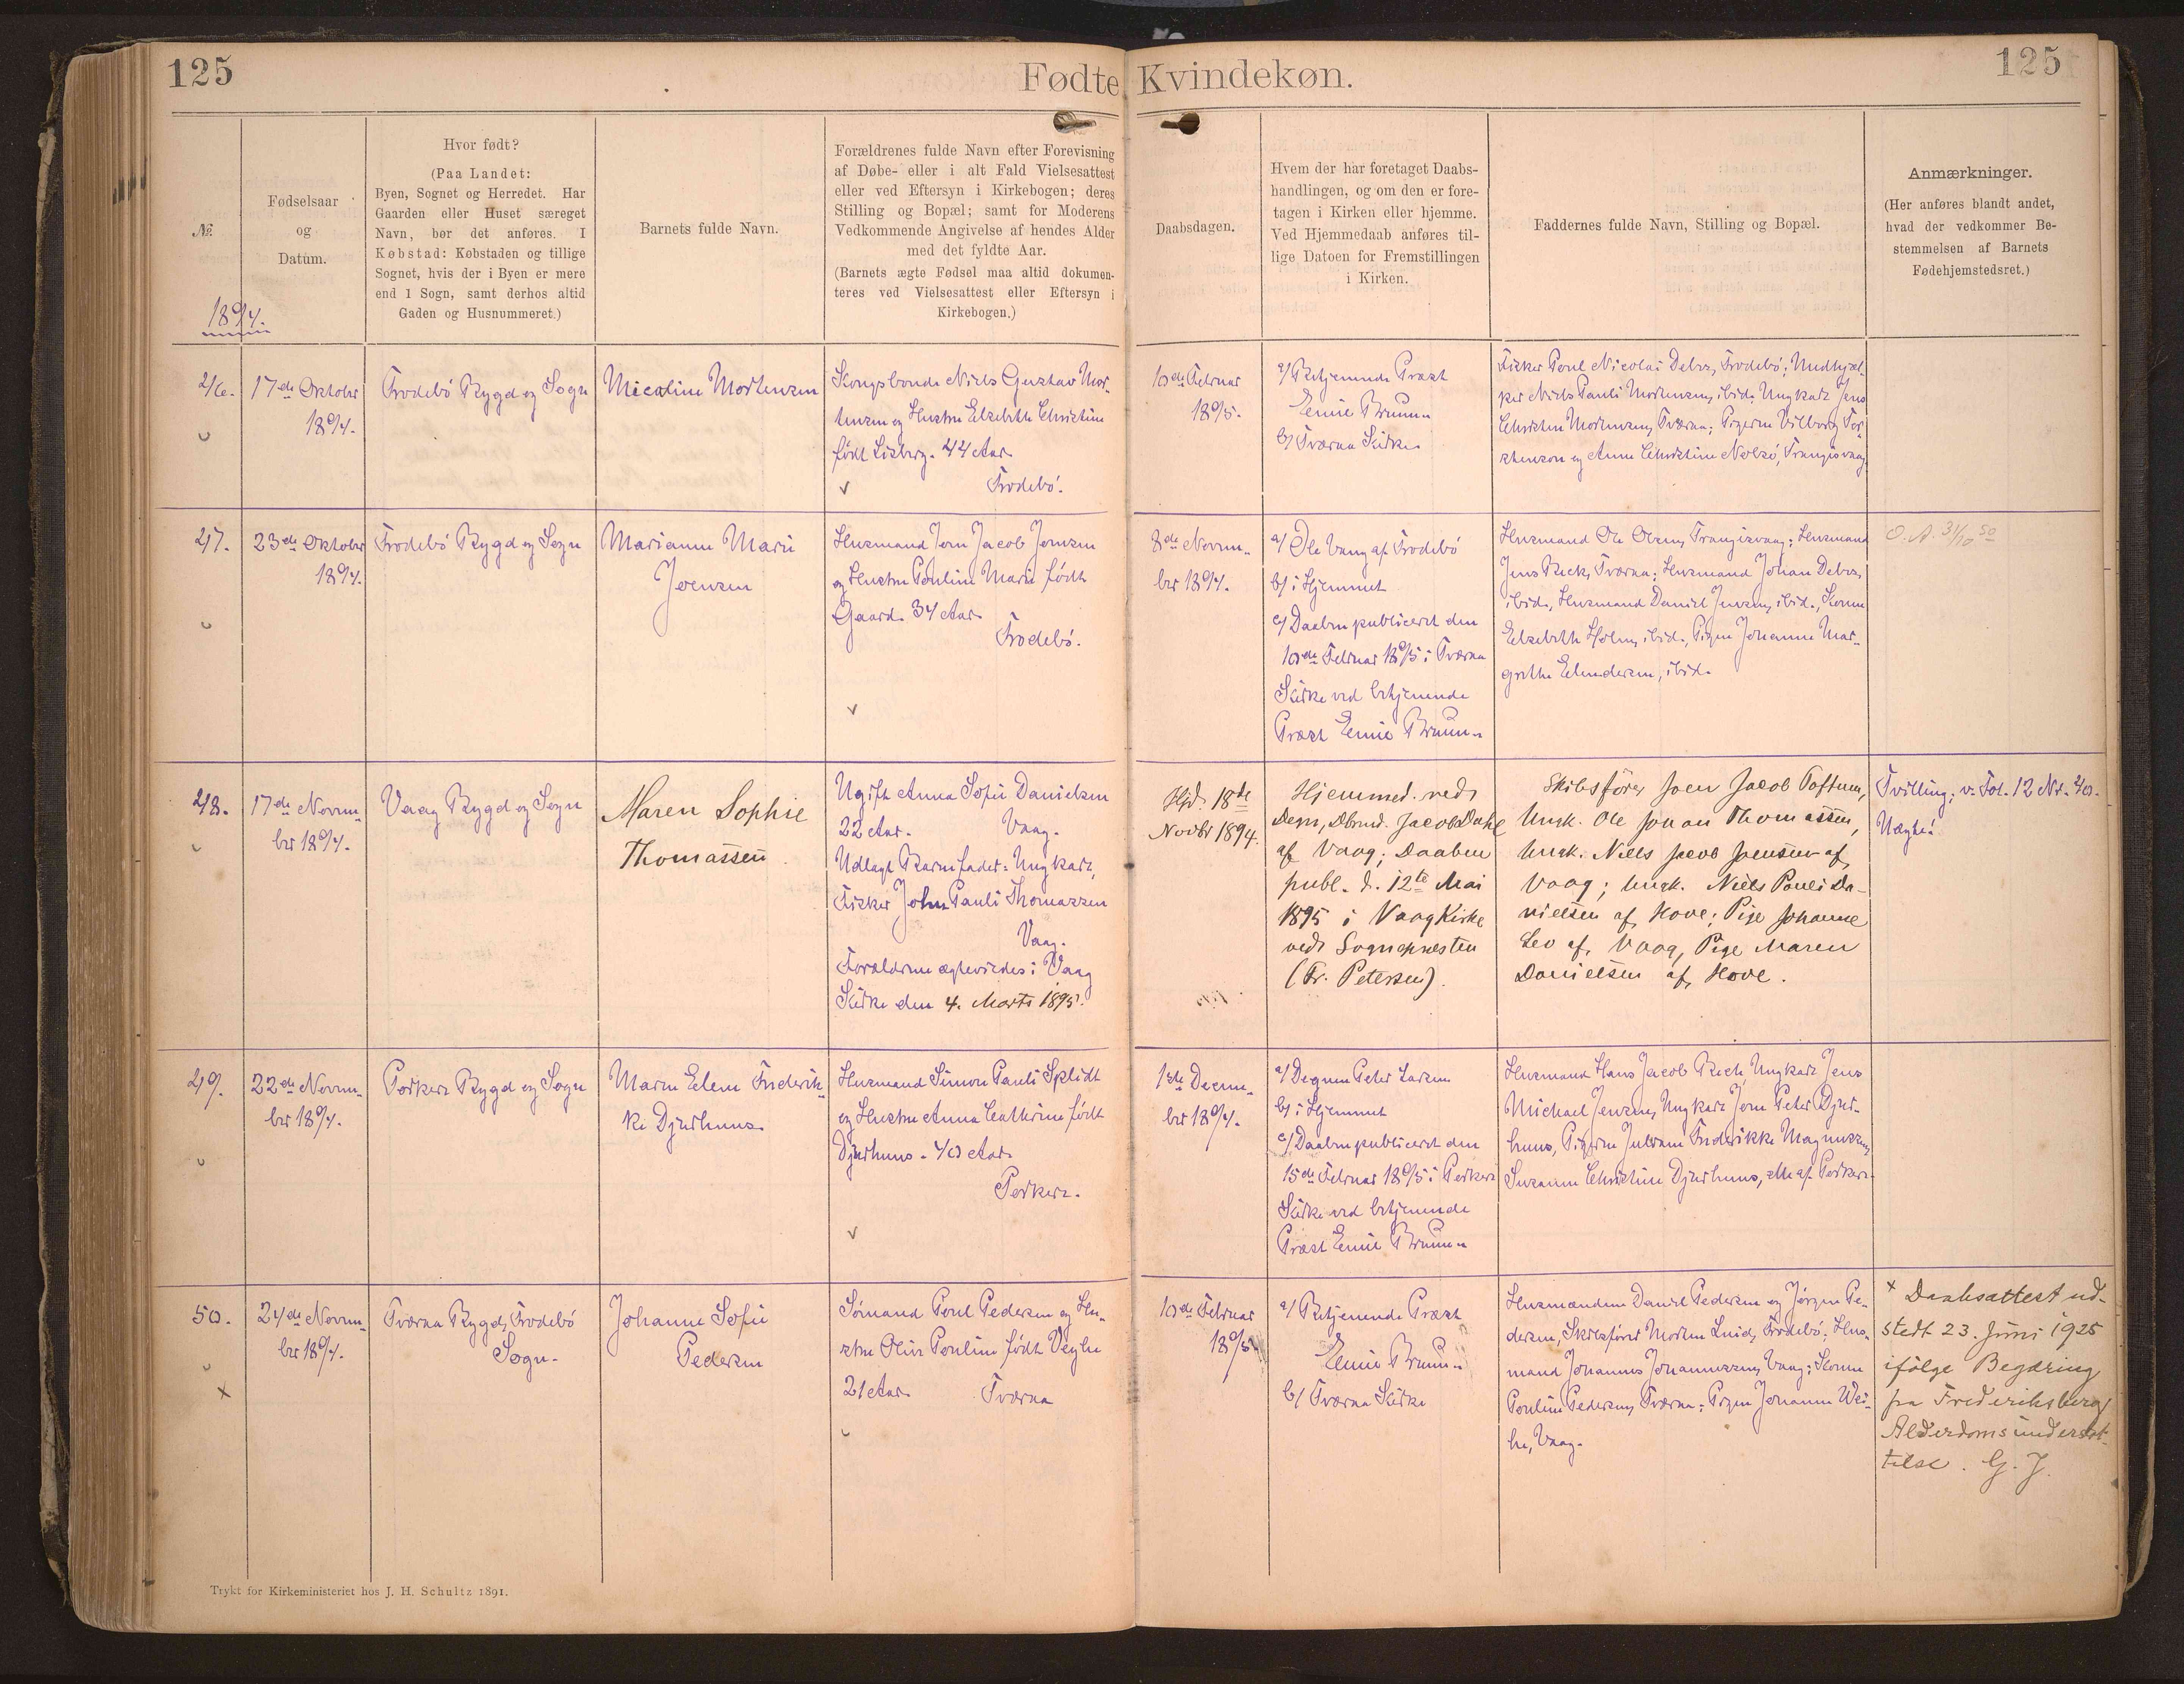 125
Fødte Kvindekøn.
125
№
Fødselsaar
og
Datum.
Hvor født?
(Paa Landet:
Byen, Sognet og Herredet. Har
Gaarden eller Huset særeget
Navn, bør det anføres. I
Købstad: Købstaden og tillige
Sognet, hvis der i Byen er mere
end 1 Sogn, samt derhos altid
Gaden og Husnummeret.)
Barnets fulde Navn.
Forældrenes fulde Navn efter Forevisning
af Døbe- eller i alt Fald Vielsesattest
eller ved Eftersyn i Kirkebogen; deres
Stilling og Bopæl; samt for Moderens
Vedkommende Angivelse af hendes Alder
med det fyldte Aar.
(Barnets ægte Fødsel maa altid dokumen-
teres ved Vielsesattest eller Eftersyn i
Kirkebogen.)
Daabsdagen.
Hvem der har foretaget Daabs-
handlingen, og om den er fore-
tagen i Kirken eller hjemme.
Ved Hjemmedaab anføres til-
lige Datoen for Fremstillingen
i Kirken.
Faddernes fulde Navn, Stilling og Bopæl.
Anmærkninger.
(Her anføres blandt andet,
hvad der vedkommer Be-
stemmelsen af Barnets
Fødehjemstedsret.)
1894.
46.
17de Oktober
1894.
Frodebö Bygd og Sogn
Micoline Mortensen
Kongsbonde Niels Gustav Mor-
tensen og Hustru Elsebeth Christine
født Lisberg. 44 Aar.
Frodebö.
10de Februar
1895.
a/ Betjenende Præst
Emil Bruun.
b/ Tværaa Kirke.
Fisker Poul Nicolai Debes, Frodebö; Medhjæl-
per Niels Pauli Mortensen, ibid.; Ungkarl Jens
Christen Mortensen, Tværaa; Pigerne Vilborg Tor-
stensen og Anne Christine Nolsö, Trangisvaag.
47.
23de Oktober
1894.
Frodebö Bygd og Sogn
Marianne Marie
Joensen
Husmand Joen Jacob Joensen
og Hustru Pouline Marie født
Gaard. 34 Aar.
Frodebö.
8de Novem-
ber 1894.
a/ Ole Vang af Frodebö
b/ i Hjemmet
c/ Daaben publiceret den
10de Februar 1895 i Tværaa
Kirke ved betjenende
Præst Emil Bruun.
Husmand Ole Olsen, Trangisvaag; Husmand
Jens Bech, Tværaa; Husmand Johan Debes,
ibid., Husmand Daniel Jensen, ibid., Konen
Elsebeth Holm, ibid., Pigen Johanne Mar-
grethe Elendersen, ibid.
O. A. 31/10 50
48.
17de Novem-
ber 1894.
Vaag Bygd og Sogn
Maren Sophie
Thomassen.
Ugift Anna Sofie Danielsen
22 Aar. Vaag.
Udlagt Barnefader: Ungkarl,
Fisker John Pauli Thomassen
Vaag.
Forældrene ægteviedes i Vaag
Kirke den 4. Marts 1895.
Hjd. 18de
Novbr 1894.
Hjemmed. ved
Degn, Dbrmd. Jacob Dahl
af Vaag; Daaben
publ. d. 12te Mai
1895 i Vaag Kirke
ved Sognepræsten
(Fr. Petersen).
Skibsfører Joen Jacob Toftum,
Ungk. Ole Johan Thomassen,
Ungk. Niels Jacob Joensen af
Vaag; Ungk. Niels Pauli Da-
nielsen af Hove; Pige Johanne
Leo af Vaag, Pige Maren
Danielsen af Hove.
Tvilling; v. Fol. 12 Nr. 40.
Uægte!
49.
22de Novem-
ber 1894.
Porkere Bygd og Sogn
Maren Elene Frederik-
ke Djurhuus
Husmand Simon Pauli Splidt
og Hustru Anna Cathrine født
Djurhuus. 40 Aar.
Porkere.
1ste Decem-
ber 1894.
a/ Degnen Peter Larsen
b/ i Hjemmet
c/ Daaben publiceret den
15de Februar 1895 i Porkere
Kirke ved betjenende
Præst Emil Bruun.
Husmand Hans Jacob Bech, Ungkarl Jens
Michael Jensen, Ungkarl Joen Peter Djur-
huus, Pigerne Julianne Frederikke Magnussen,
Susanne Christine Djurhuus, alle af Porkere.
50.
24de Novem-
ber 1894.
Tværaa Bygd, Frodebö
Sogn.
x
Johanne Sofie
Pedersen
Sømand Poul Pedersen og Hu-
stru Olivia Pouline født Veyhe
21 Aar. Tværaa
10de Februar
1895.
a/ Betjenende Præst
Emil Bruun.
b/ Tværaa Kirke
Husmændene Daniel Pedersen og Jørgen Pe-
dersen, Skibsfører Morten Lind, Frodebö; Hus-
mand Johannes Johannessen, Vaag; Konen
Pouline Pedersen, Tværaa; Pigen Johanne Wei-
he, Vaag.
x Daabsattest ud-
stedt 23. Juni 1925
ifølge Begæring
fra Frederiksberg
Alderdomsunderstøt-
telse. G. J.
Trykt for Kirkeministeriet hos J. H. Schultz 1891.